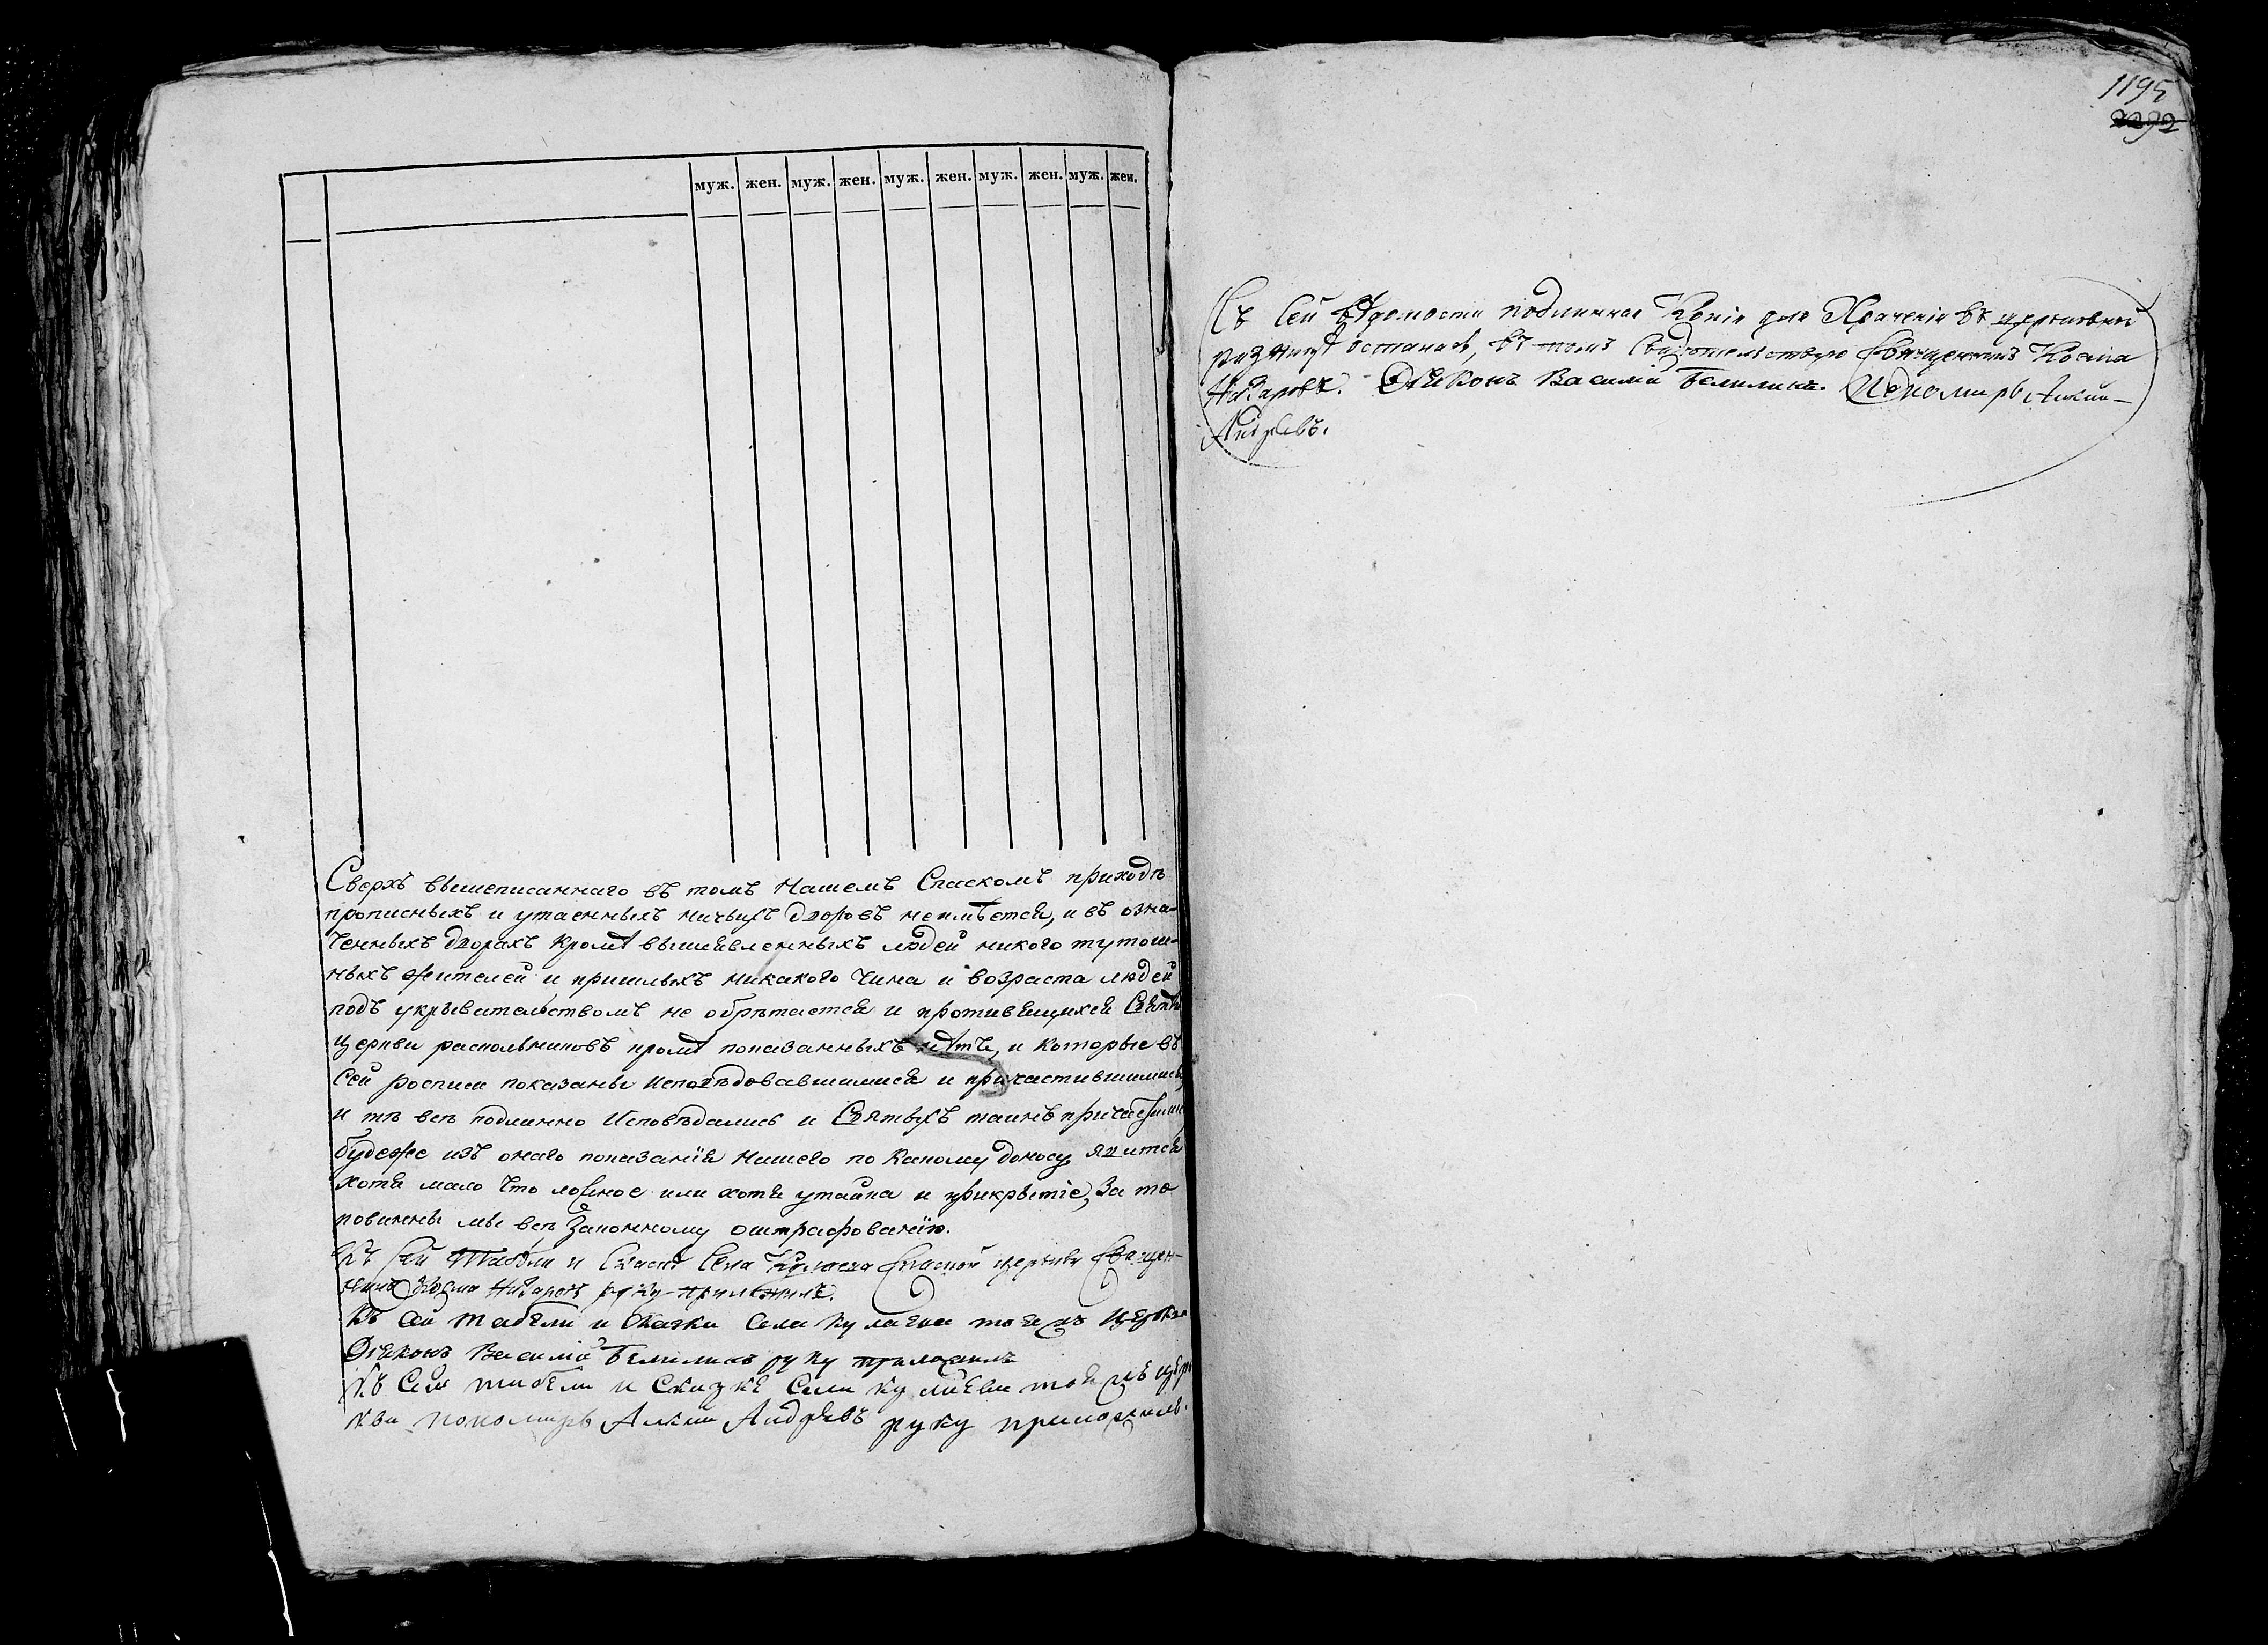 муж. жен. муж. жен. муж. жен. муж. жен. муж. жен.
Сверхъ вышеписаннаго въ томъ нашемъ Спаскомъ приходѣ
прописныхъ и утаенныхъ ничьихъ дворовъ неимѣется, и въ озна-
ченныхъ дворахъ кромѣ вышеявленныхъ людей никого тутош-
ныхъ жителей и пришлыхъ никакого чина и возраста людей
подъ укрывательствомъ не обрѣтается и противящихся Святѣ
церкви раскольниковъ кромѣ показанныхъ нѣтъ, и которые въ
сей росписи показаны исповѣдовавшимися и причастившимися
и тѣ всѣ подлинно Исповѣдались и Святыхъ таинъ
будеже изъ онаго показанїя нашего по какому доносу явится
хотя мало что ложное или хотя утайка и прикрытїе, за то
повинны мы всѣ Законному оштрафованїю.
Къ сей табели и Села Спаской церкви Священ-
никъ Козма Назаровъ руку приложилъ.
Къ сей табели и сказки села тоежъ церкви
Дїаконъ Василій Белилинъ руку приложилъ
Къ сей табели и Сказкѣ села тоежъ цер
кви пономарь Андрѣевъ руку приложилъ.
1195
2292
Съ Сей вѣдомости подлинная Копія для Храненія въ церковной
ризницѣ оставлена, въ томъ Свидѣтельствую Священникъ Косма
Назаровъ. Дїаконъ Василій Белилинъ. Пономарь
Андрѣевъ.